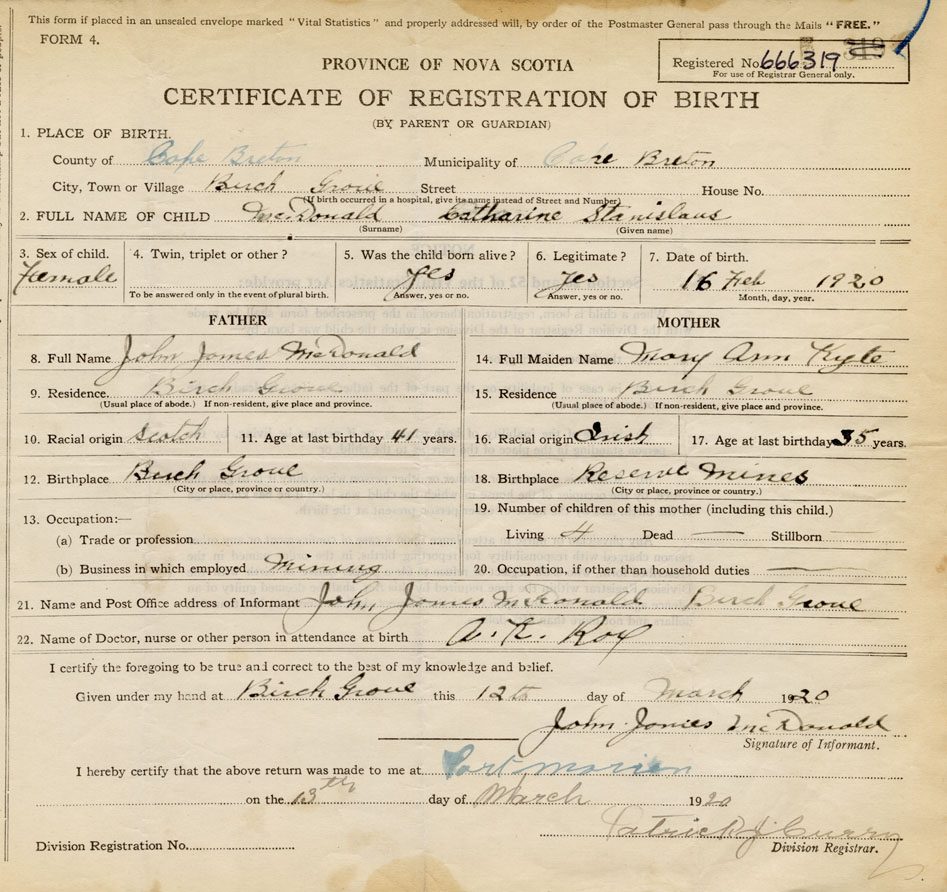 This form if placed in an unsealed envelope marked "Vital Statistics" and properly addressed will, by order of the Postmaster General pass through the Mails "FREE."
FORM 4.
Registered No. 666319
For use of Registrar General only.
PROVINCE OF NOVA SCOTIA
CERTIFICATE OF REGISTRATION OF BIRTH
(BY PARENT OR GUARDIAN)
1. PLACE OF BIRTH.
County of Cape Breton Municipality of Cape Breton
City, Town or Village Birch Grove Street House No.
(If birth occurred in a hospital, give its name instead of Street and Number)
2. FULL NAME OF CHILD McDonald Catharine Stanislaus
(Surname) (Given name)
3. Sex of child. 4. Twin, triplet or other? 5. Was the child born alive? 6. Legitimate? 7. Date of birth.
Female Yes Yes 16 Feb 1920
To be answered only in the event of plural birth. Answer, yes or no. Answer, yes or no. Month, day, year.
FATHER MOTHER
8. Full Name John James McDonald 14. Full Maiden Name Mary Ann Kyte
9. Residence. Birch Grove 15. Residence Birch Grove
(Usual place of abode.) If non-resident, give place and province. (Usual place of abode.) If non-resident, give place and province.
10. Racial origin Scotch 11. Age at last birthday 41 years. 16. Racial origin Irish 17. Age at last birthday 35 years.
12. Birthplace Birch Grove 18. Birthplace Reserve Mines
(City or place, province or country.) (City or place, province or country.)
13. Occupation:— 19. Number of children of this mother (including this child.)
(a) Trade or profession Living 4 Dead — Stillborn —
(b) Business in which employed Mining 20. Occupation, if other than household duties —
21. Name and Post Office address of Informant John James McDonald Birch Grove
22. Name of Doctor, nurse or other person in attendance at birth A. K. Roy
I certify the foregoing to be true and correct to the best of my knowledge and belief.
Given under my hand at Birch Grove this 12th day of March 1920
John James McDonald
Signature of Informant.
I hereby certify that the above return was made to me at Port Morien
on the 13th day of March 1920
Patrick J Curry
Division Registration No. Division Registrar.